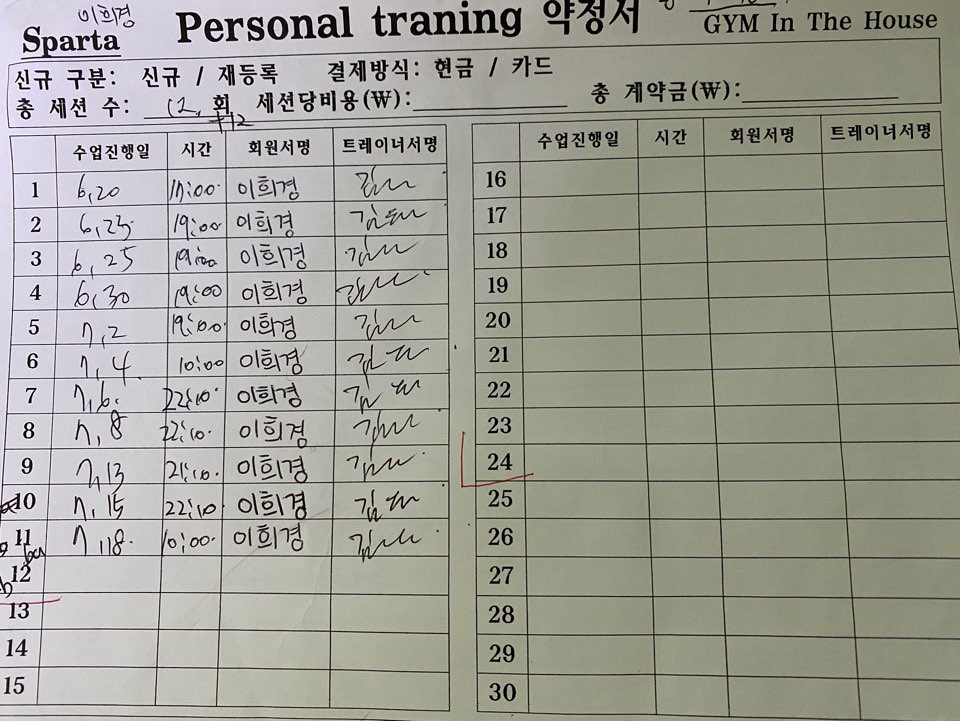 이희경
Sparta Personal traning 약정서 GYM In The House
신규 구분: 신규 / 재등록 결제방식: 현금 / 카드
총 세션 수: 12, 회 세션당비용(₩): 총 계약금(₩):
+12
수업진행일 시간 회원서명 트레이너서명 수업진행일 시간 회원서명 트레이너서명
1 6,20 17:00 이희경 16
2 6,23 19:00 이희경 17
3 6,25 19:00 이희경 18
4 6,30 19:00 이희경 19
5 7,2 19:00 이희경 20
6 7,4 10:00 이희경 21
7 7,6. 22:10 이희경 22
8 7,8 22:10. 이희경 23
9 7,13 21:10. 이희경 24
10 7,15 22:10 이희경 25
11 7,18. 10:00. 이희경 26
12 27
13 28
14 29
15 30